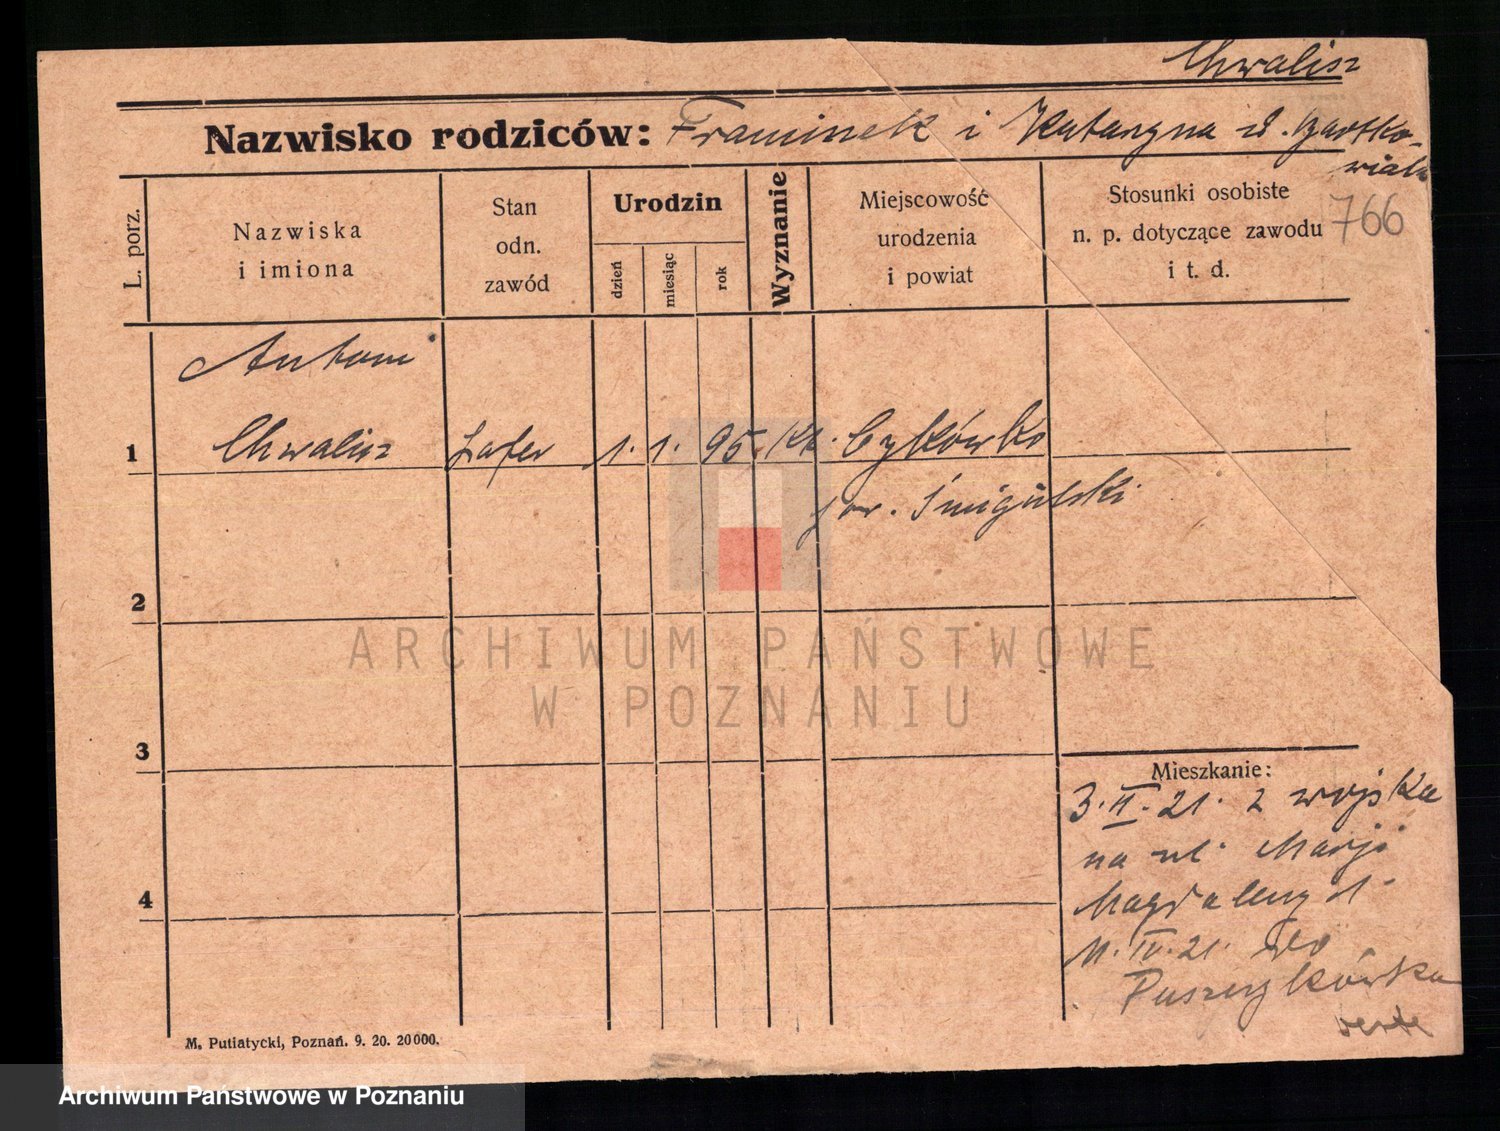 Chwalisz
Nazwisko rodziców: Franciszek i Katarzyna z d. Bartko-
wiak
766
L. porz.
Nazwiska
i imiona
Stan
odn.
zawód
Urodzin
dzień
miesiąc
rok
Wyznanie
Miejscowość
urodzenia
i powiat
Stosunki osobiste
n. p. dotyczące zawodu
i t. d.
Antoni
1 Chwalisz szofer 1. 1. 95. kt. Cykówko
pow. Śmigielski
2
3
4
Mieszkanie:
3.II.21. z wojska
na ul. Marji
Magdaleny 1
11.IV.21. do
Puszczykówka
verte
M. Putiatycki, Poznań. 9. 20. 20000.
ARCHIWUM PAŃSTWOWE
W POZNANIU
Archiwum Państwowe w Poznaniu